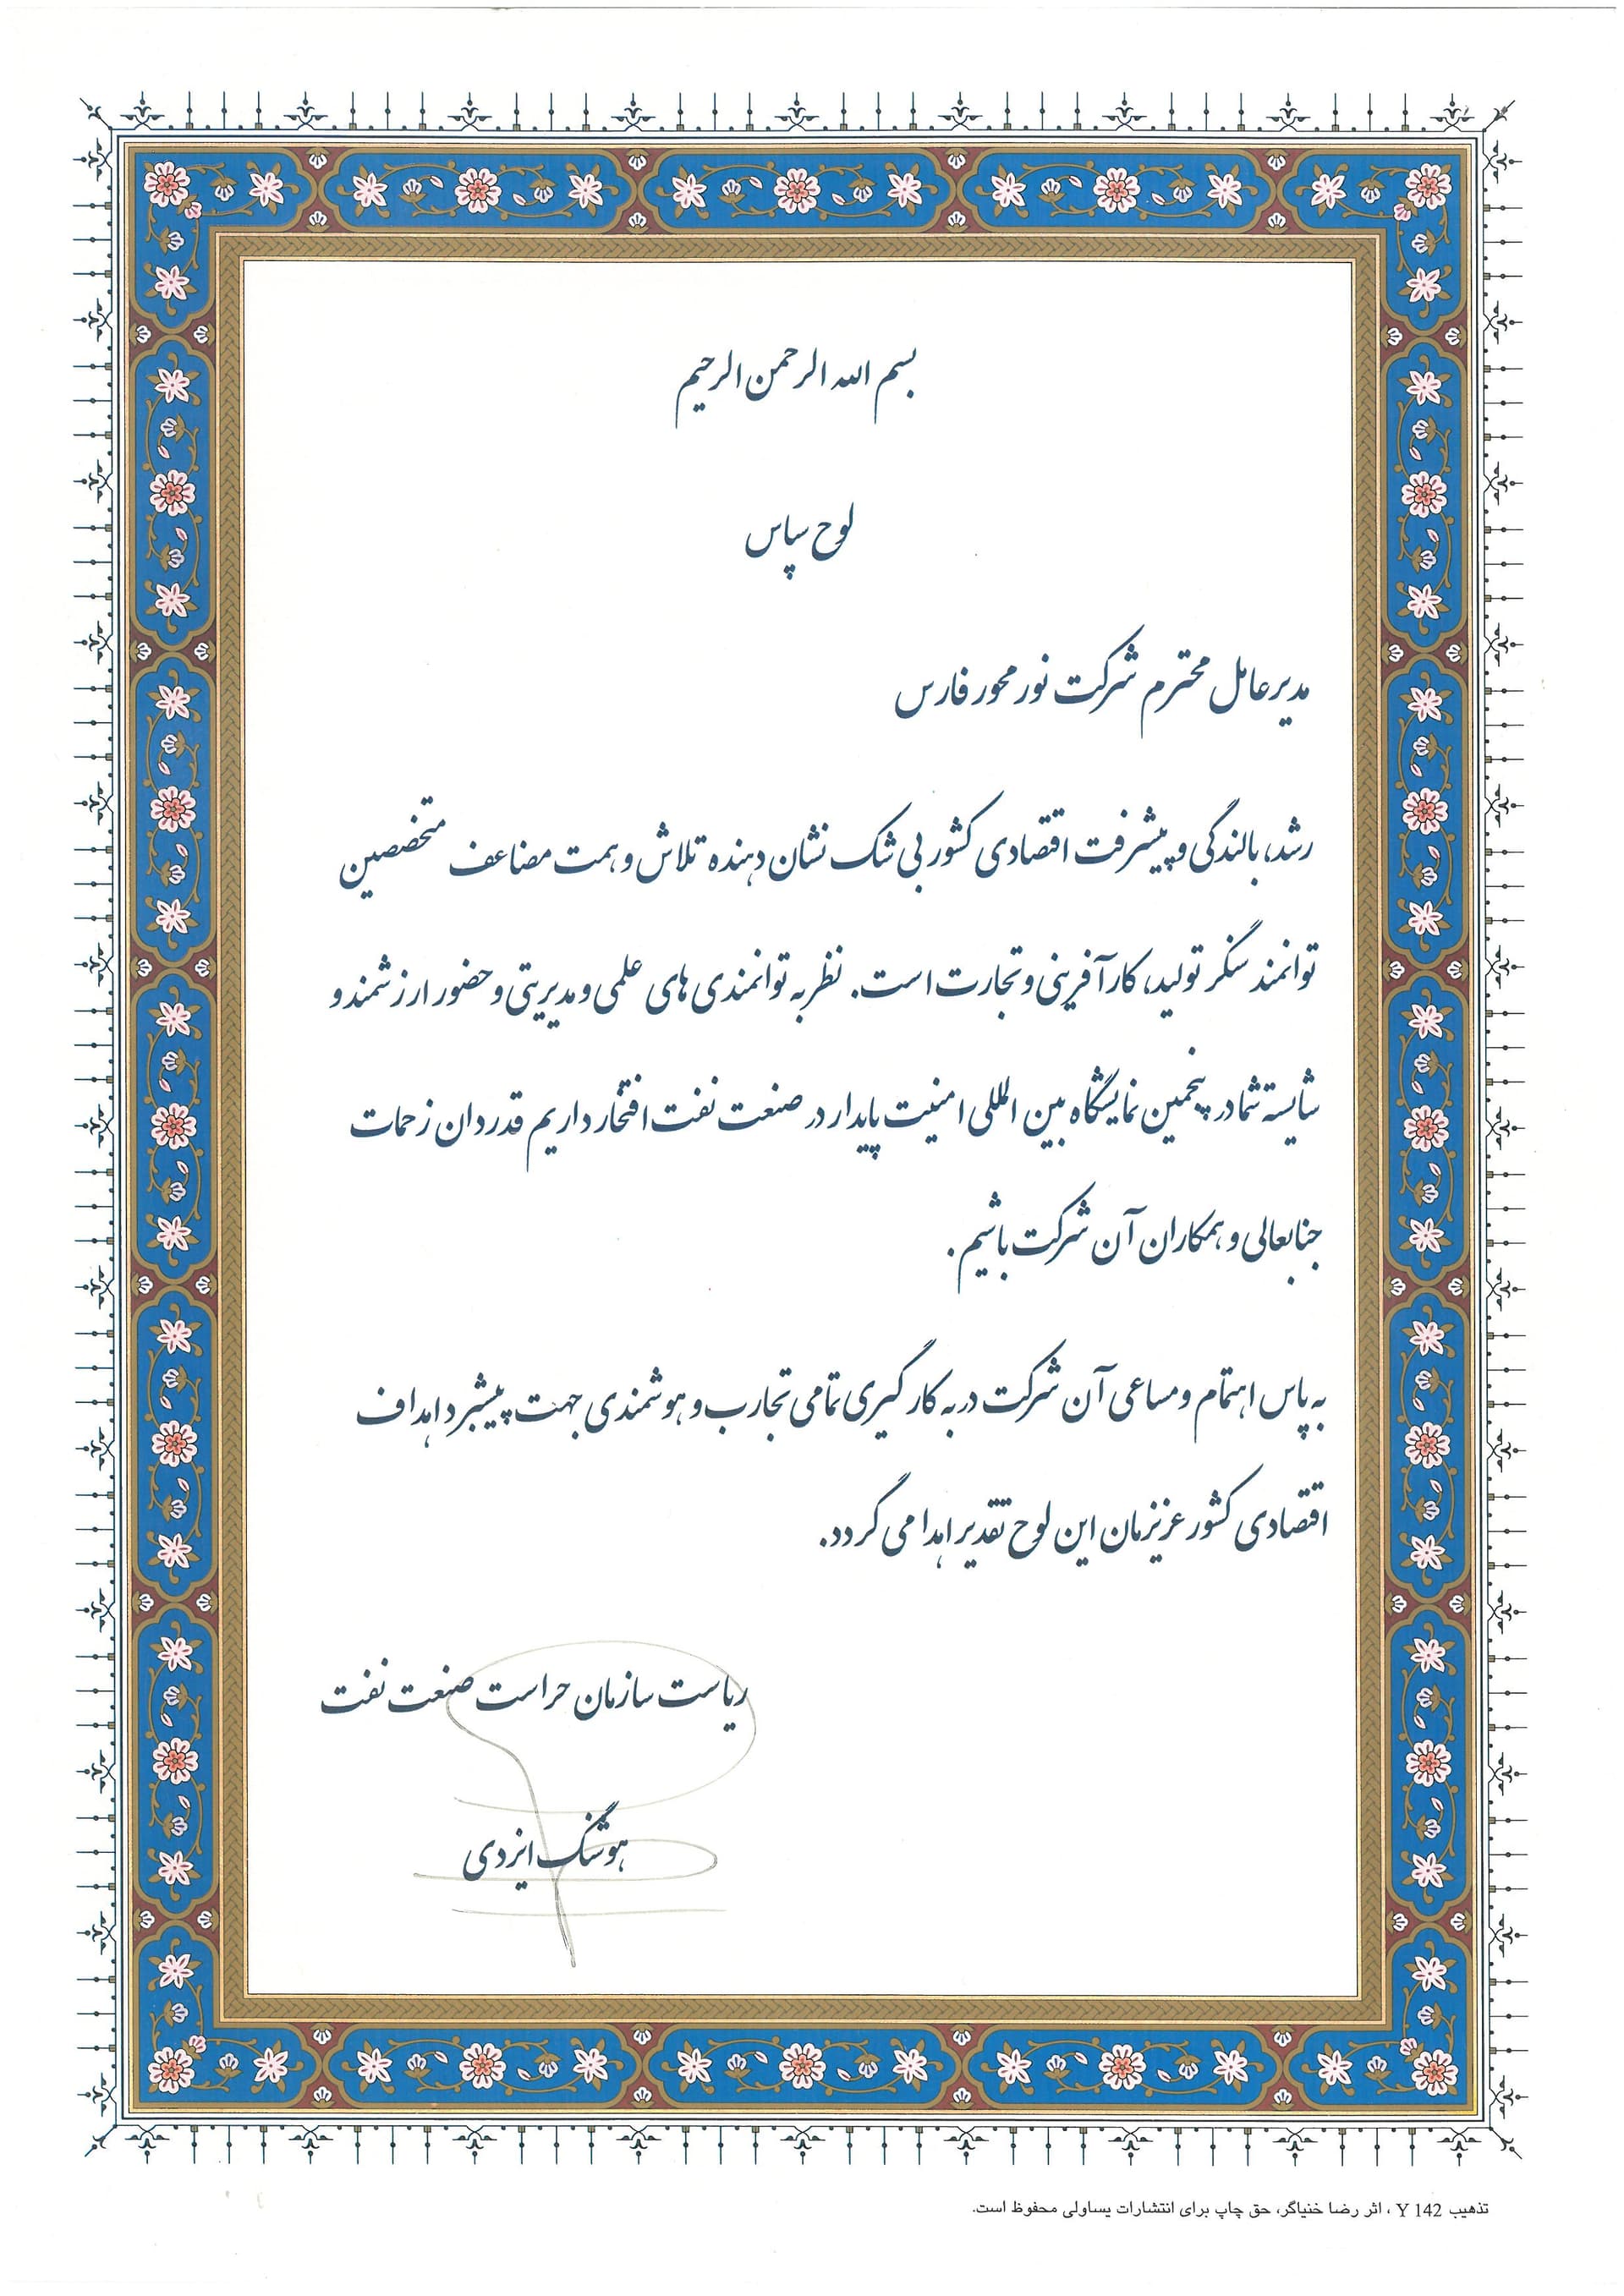 بسم الله الرحمن الرحیم
لوح سپاس
مدیرعامل محترم شرکت نور محور فارس
رشد، بالندگی و پیشرفت اقتصادی کشور بی شک نشان دهنده تلاش و همت مضاعف متخصصین
توانمند سنگر تولید، کارآفرینی و تجارت است. نظر به توانمندی های علمی و مدیریتی و حضور ارزشمند و
شایسته شما در پنجمین نمایشگاه بین المللی امنیت پایدار در صنعت نفت افتخار داریم قدردان زحمات
جنابعالی و همکاران آن شرکت باشیم.
به پاس اهتمام و مساعی آن شرکت در به کارگیری تمامی تجارب و هوشمندی جهت پیشبرد اهداف
اقتصادی کشور عزیزمان این لوح تقدیر اهدا می گردد.
ریاست سازمان حراست صنعت نفت
هوشنگ ایزدی
تذهیب Y 142 ، اثر رضا خنیاگر، حق چاپ برای انتشارات یساولی محفوظ است.